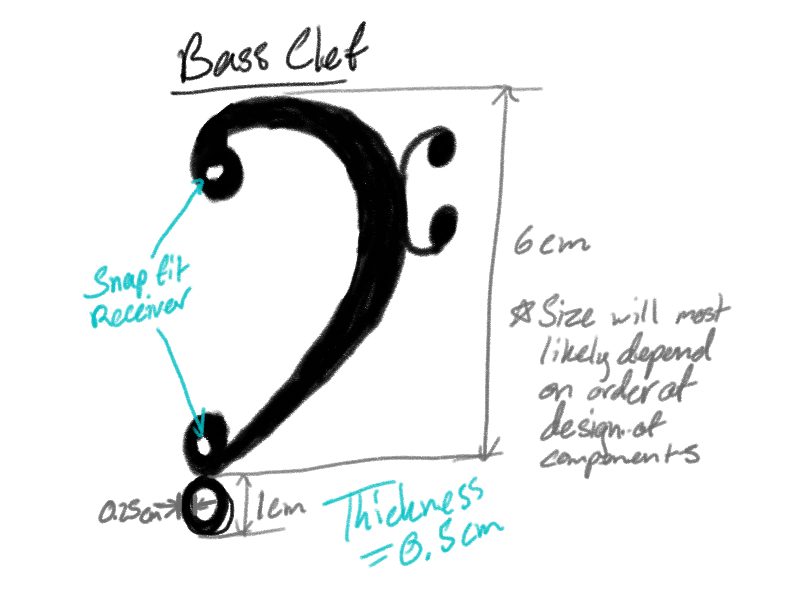 Bass Clef
6cm
Snap fit
Receiver
*Size will most
likely depend
on order of
design of
components
0.25cm
1cm
Thickness
= 0.5cm